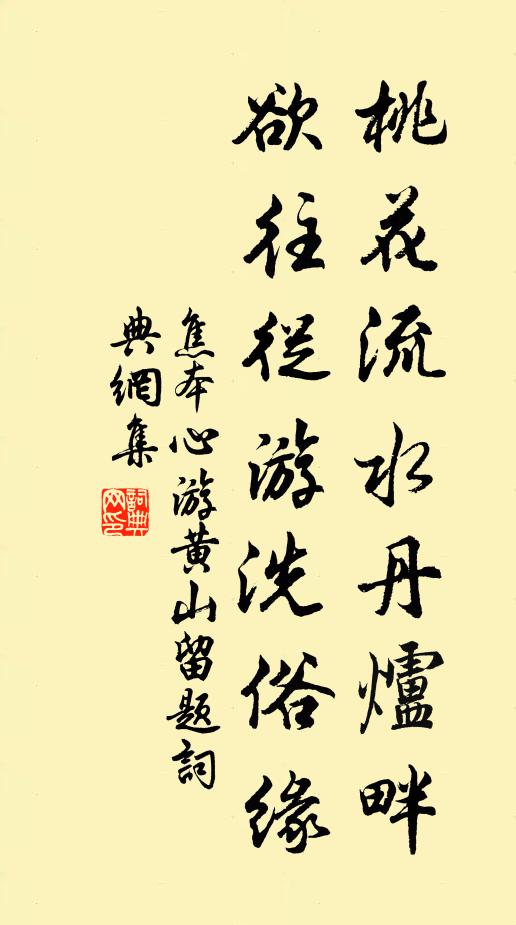 桃花流水丹爐畔
欲往從游洗俗緣
焦本心游黄山留題詞
典網集
詞典網印